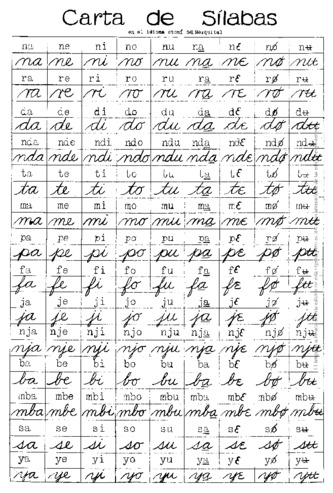 Carta de Sílabas
en el idioma otomí del Mezquital
na ne ni no nu na̱ nɛ nø nʉ
na ne ni no nu na̱ nɛ nø nʉ
ra re ri ro ru ra̱ rɛ rø rʉ
ra re ri ro ru ra̱ rɛ rø rʉ
da de di do du da̱ dɛ dø dʉ
da de di do du da̱ dɛ dø dʉ
nda nde ndi ndo ndu nda̱ ndɛ ndø ndʉ
nda nde ndi ndo ndu nda̱ ndɛ ndø ndʉ
ta te ti to tu ta̱ tɛ tø tʉ
ta te ti to tu ta̱ tɛ tø tʉ
ma me mi mo mu ma̱ mɛ mø mʉ
ma me mi mo mu ma̱ mɛ mø mʉ
pa pe pi po pu pa̱ pɛ pø pʉ
pa pe pi po pu pa̱ pɛ pø pʉ
fa fe fi fo fu fa̱ fɛ fø fʉ
fa fe fi fo fu fa̱ fɛ fø fʉ
ja je ji jo ju ja̱ jɛ jø jʉ
ja je ji jo ju ja̱ jɛ jø jʉ
nja nje nji njo nju nja̱ njɛ njø njʉ
nja nje nji njo nju nja̱ njɛ njø njʉ
ba be bi bo bu ba̱ bɛ bø bʉ
ba be bi bo bu ba̱ bɛ bø bʉ
mba mbe mbi mbo mbu mba̱ mbɛ mbø mbʉ
mba mbe mbi mbo mbu mba̱ mbɛ mbø mbʉ
sa se si so su sa̱ sɛ sø sʉ
sa se si so su sa̱ sɛ sø sʉ
ya ye yi yo yu ya̱ yɛ yø yʉ
ya ye yi yo yu ya̱ yɛ yø yʉ